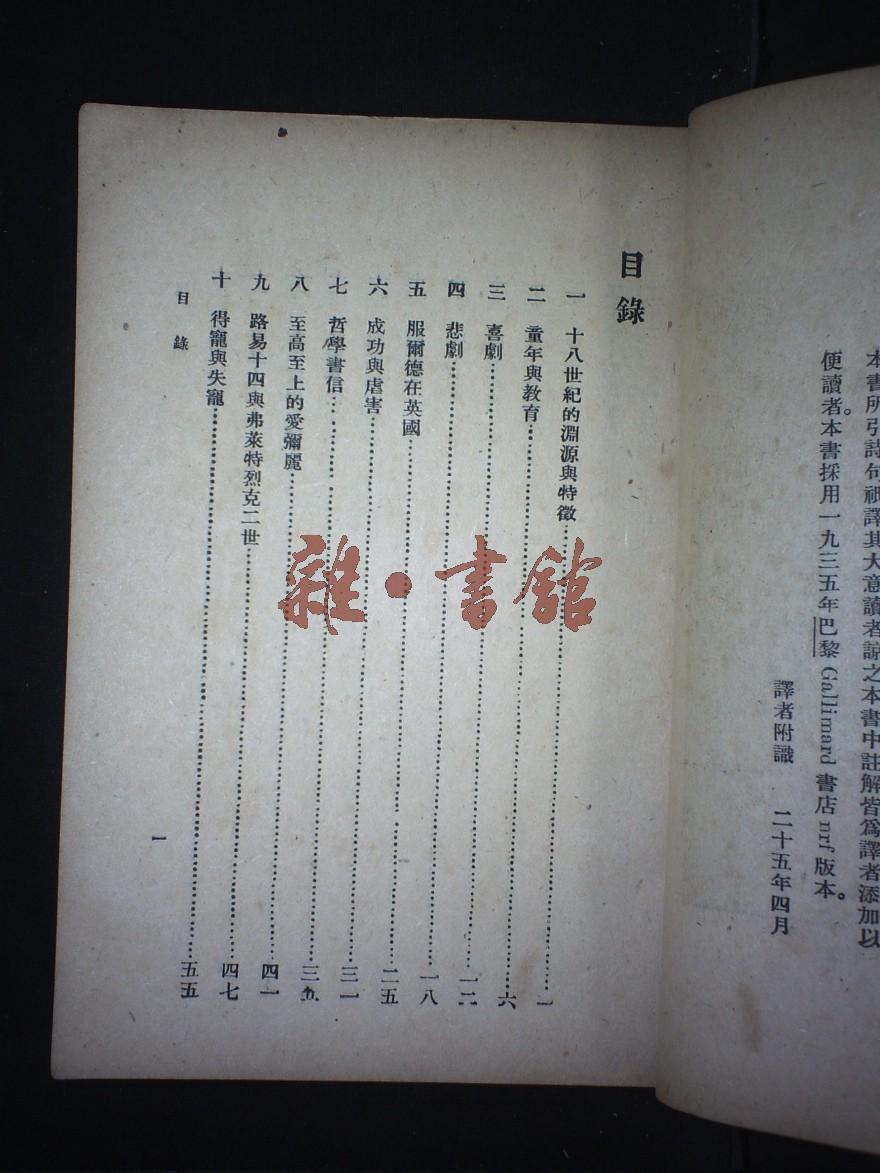 本書所引詩句祇譯其大意讀者諒之本書中註解皆爲譯者添加以
便讀者。本書採用一九三五年巴黎 Gallimard 書店 nrf 版本。
譯者附識 二十五年四月
目錄
一 十八世紀的淵源與特徵……一
二 童年與教育……六
三 喜劇……一二
四 悲劇……一八
五 服爾德在英國……二五
六 成功與虐害……三一
七 哲學書信……
八 至高至上的愛彌麗……四一
九 路易十四與弗萊特烈克二世……四七
十 得寵與失寵……五五
目錄
一
雜·書館